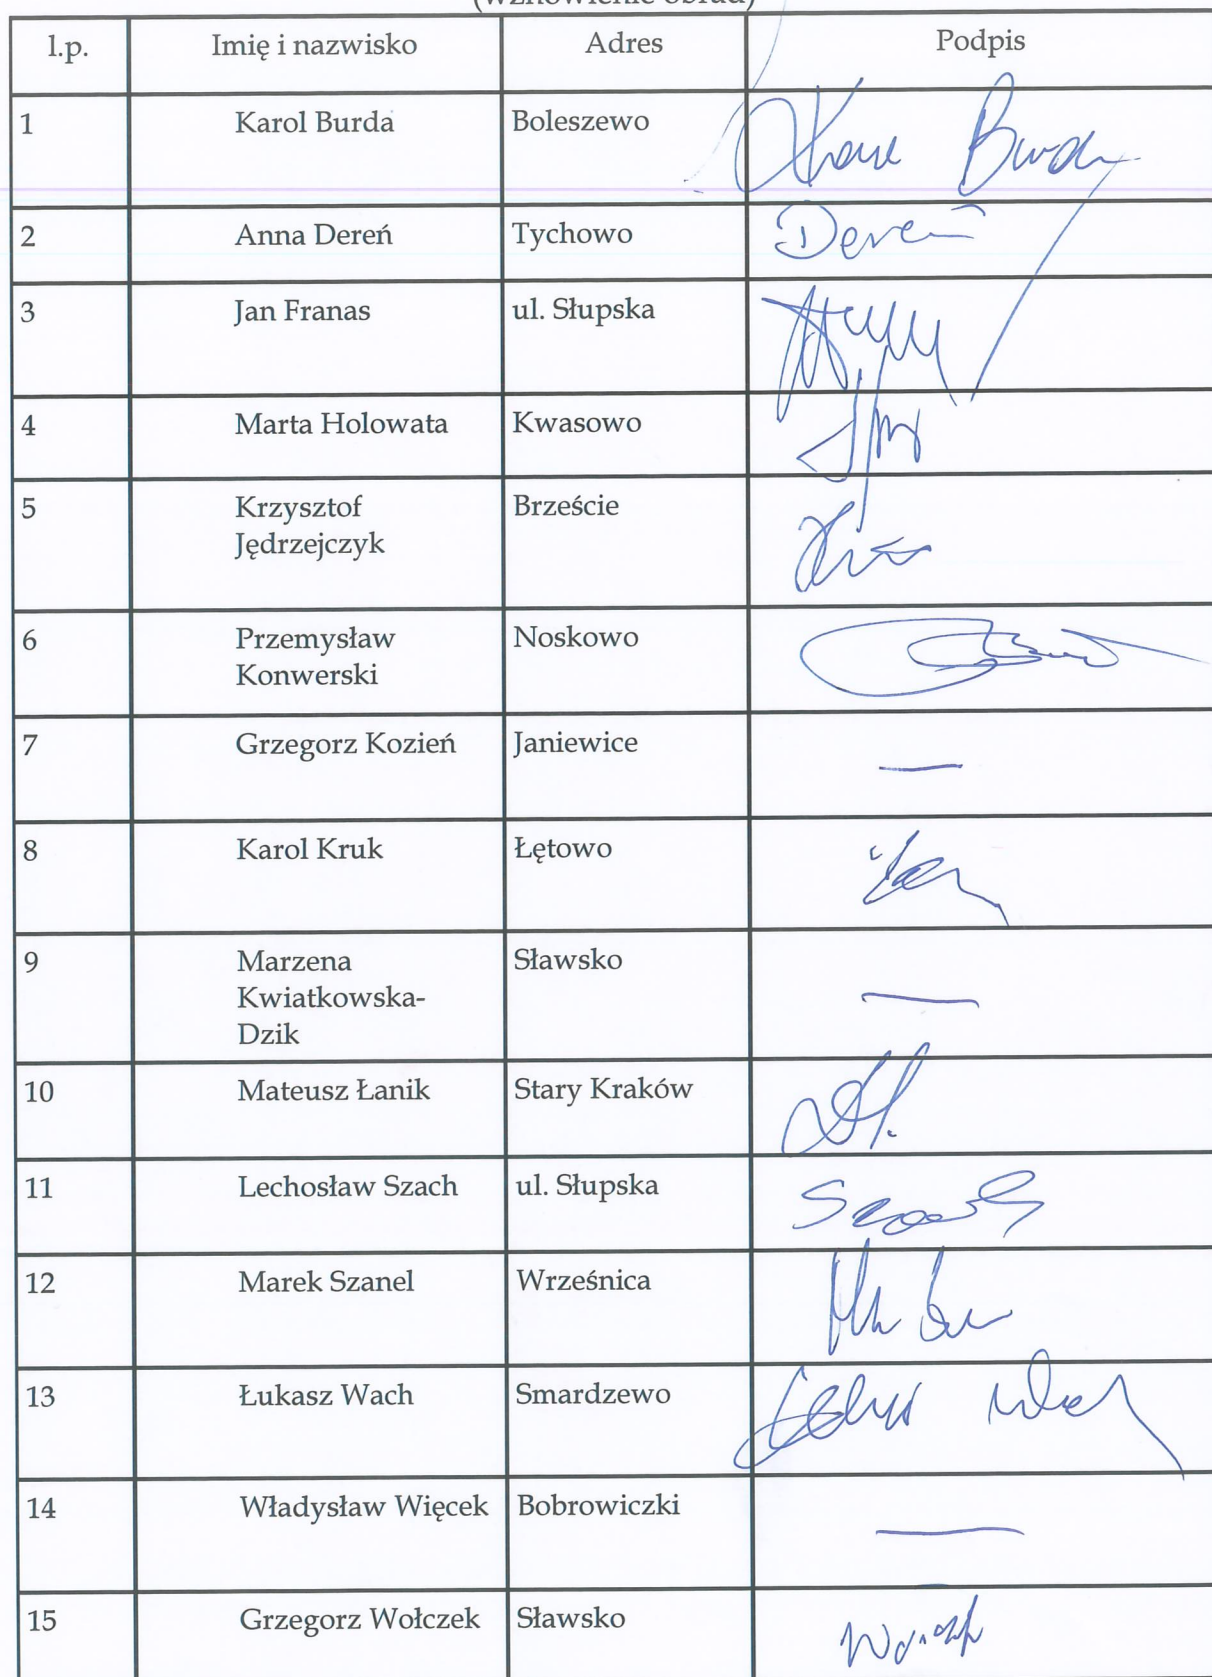 (wznowienie obrad)
l.p. Imię i nazwisko Adres Podpis
1 Karol Burda Boleszewo Burda
2 Anna Dereń Tychowo Dereń
3 Jan Franas ul. Słupska
4 Marta Holowata Kwasowo
5 Krzysztof Brzeście
Jędrzejczyk
6 Przemysław Noskowo
Konwerski
7 Grzegorz Kozień Janiewice —
8 Karol Kruk Łętowo
9 Marzena Sławsko —
Kwiatkowska-
Dzik
10 Mateusz Łanik Stary Kraków
11 Lechosław Szach ul. Słupska
12 Marek Szanel Wrześnica
13 Łukasz Wach Smardzewo
14 Władysław Więcek Bobrowiczki —
15 Grzegorz Wołczek Sławsko